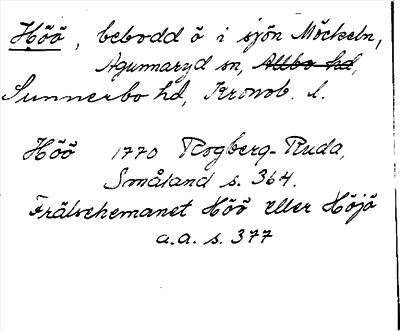 Höö, bebodd ö i sjön Möckeln,
Agunnaryd sn, Allbo hd,
Sunnerbo hd, Kronob. l.
Höö 1770 Rogberg-Ruda,
Småland s. 364.
Frälsehemanet Höö eller Höjö
a.a. s. 377